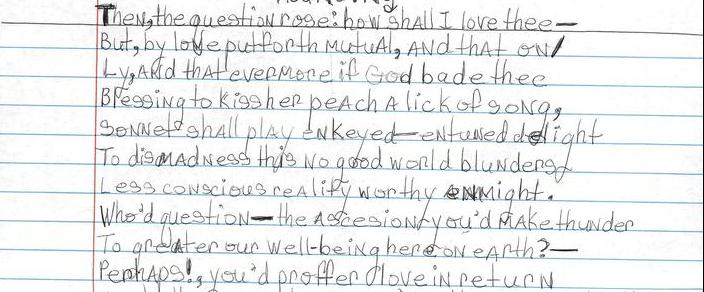 Then, the question rose: how shAll I love thee—
But, by love put forth MutuAl, ANd thAt oN/
Ly, ANd thAt everMore if God bade thee
Blessing to Kiss her peAch A lick of soNg,
SoNNets shAll plAy eNkeyed—eNtuNed delight
To disMAdNess this No good world bluNders
Less coNscious reAlity worthy eNMight.
Who'd questioN—the AscesioN you'd MAke thuNder
To greAter our well-beiNg here oN eArth?—
PerhAps!, you'd proffer love iN returN